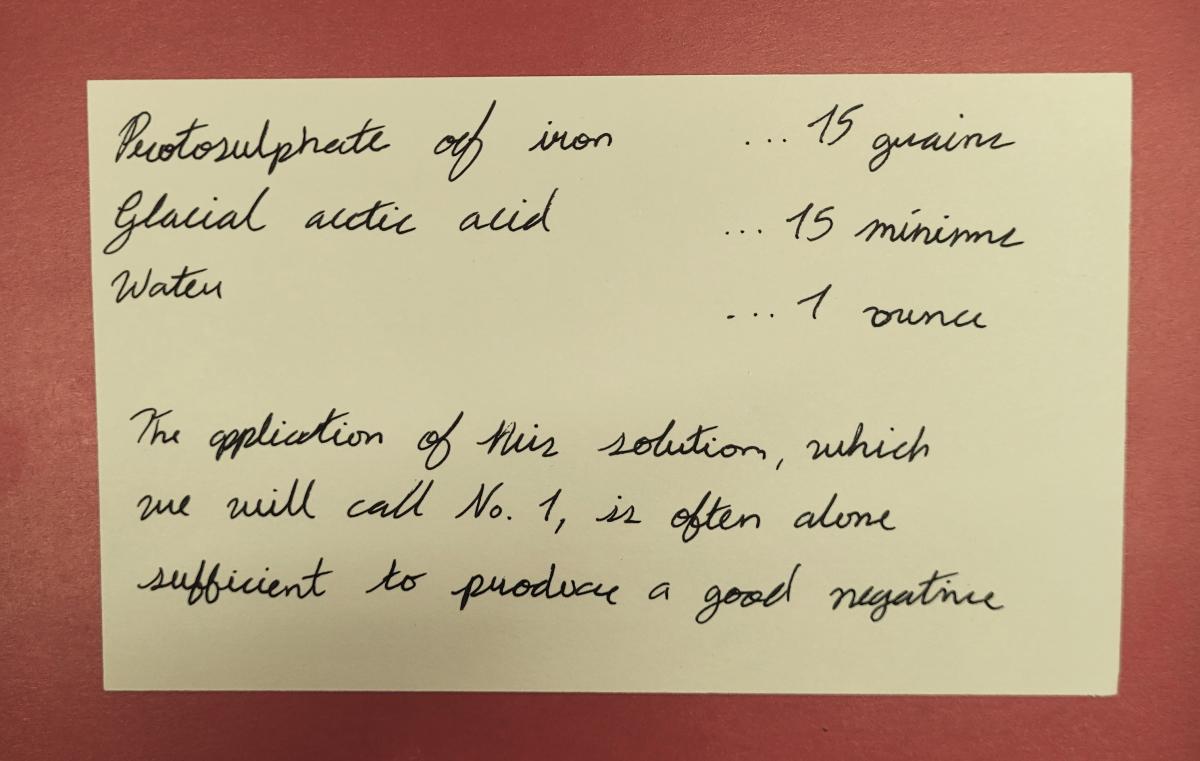 Protosulphate of iron ... 15 grains
Glacial acetic acid ... 15 minims
Water ... 1 ounce
The application of this solution, which
we will call No. 1, is often alone
sufficient to produce a good negative